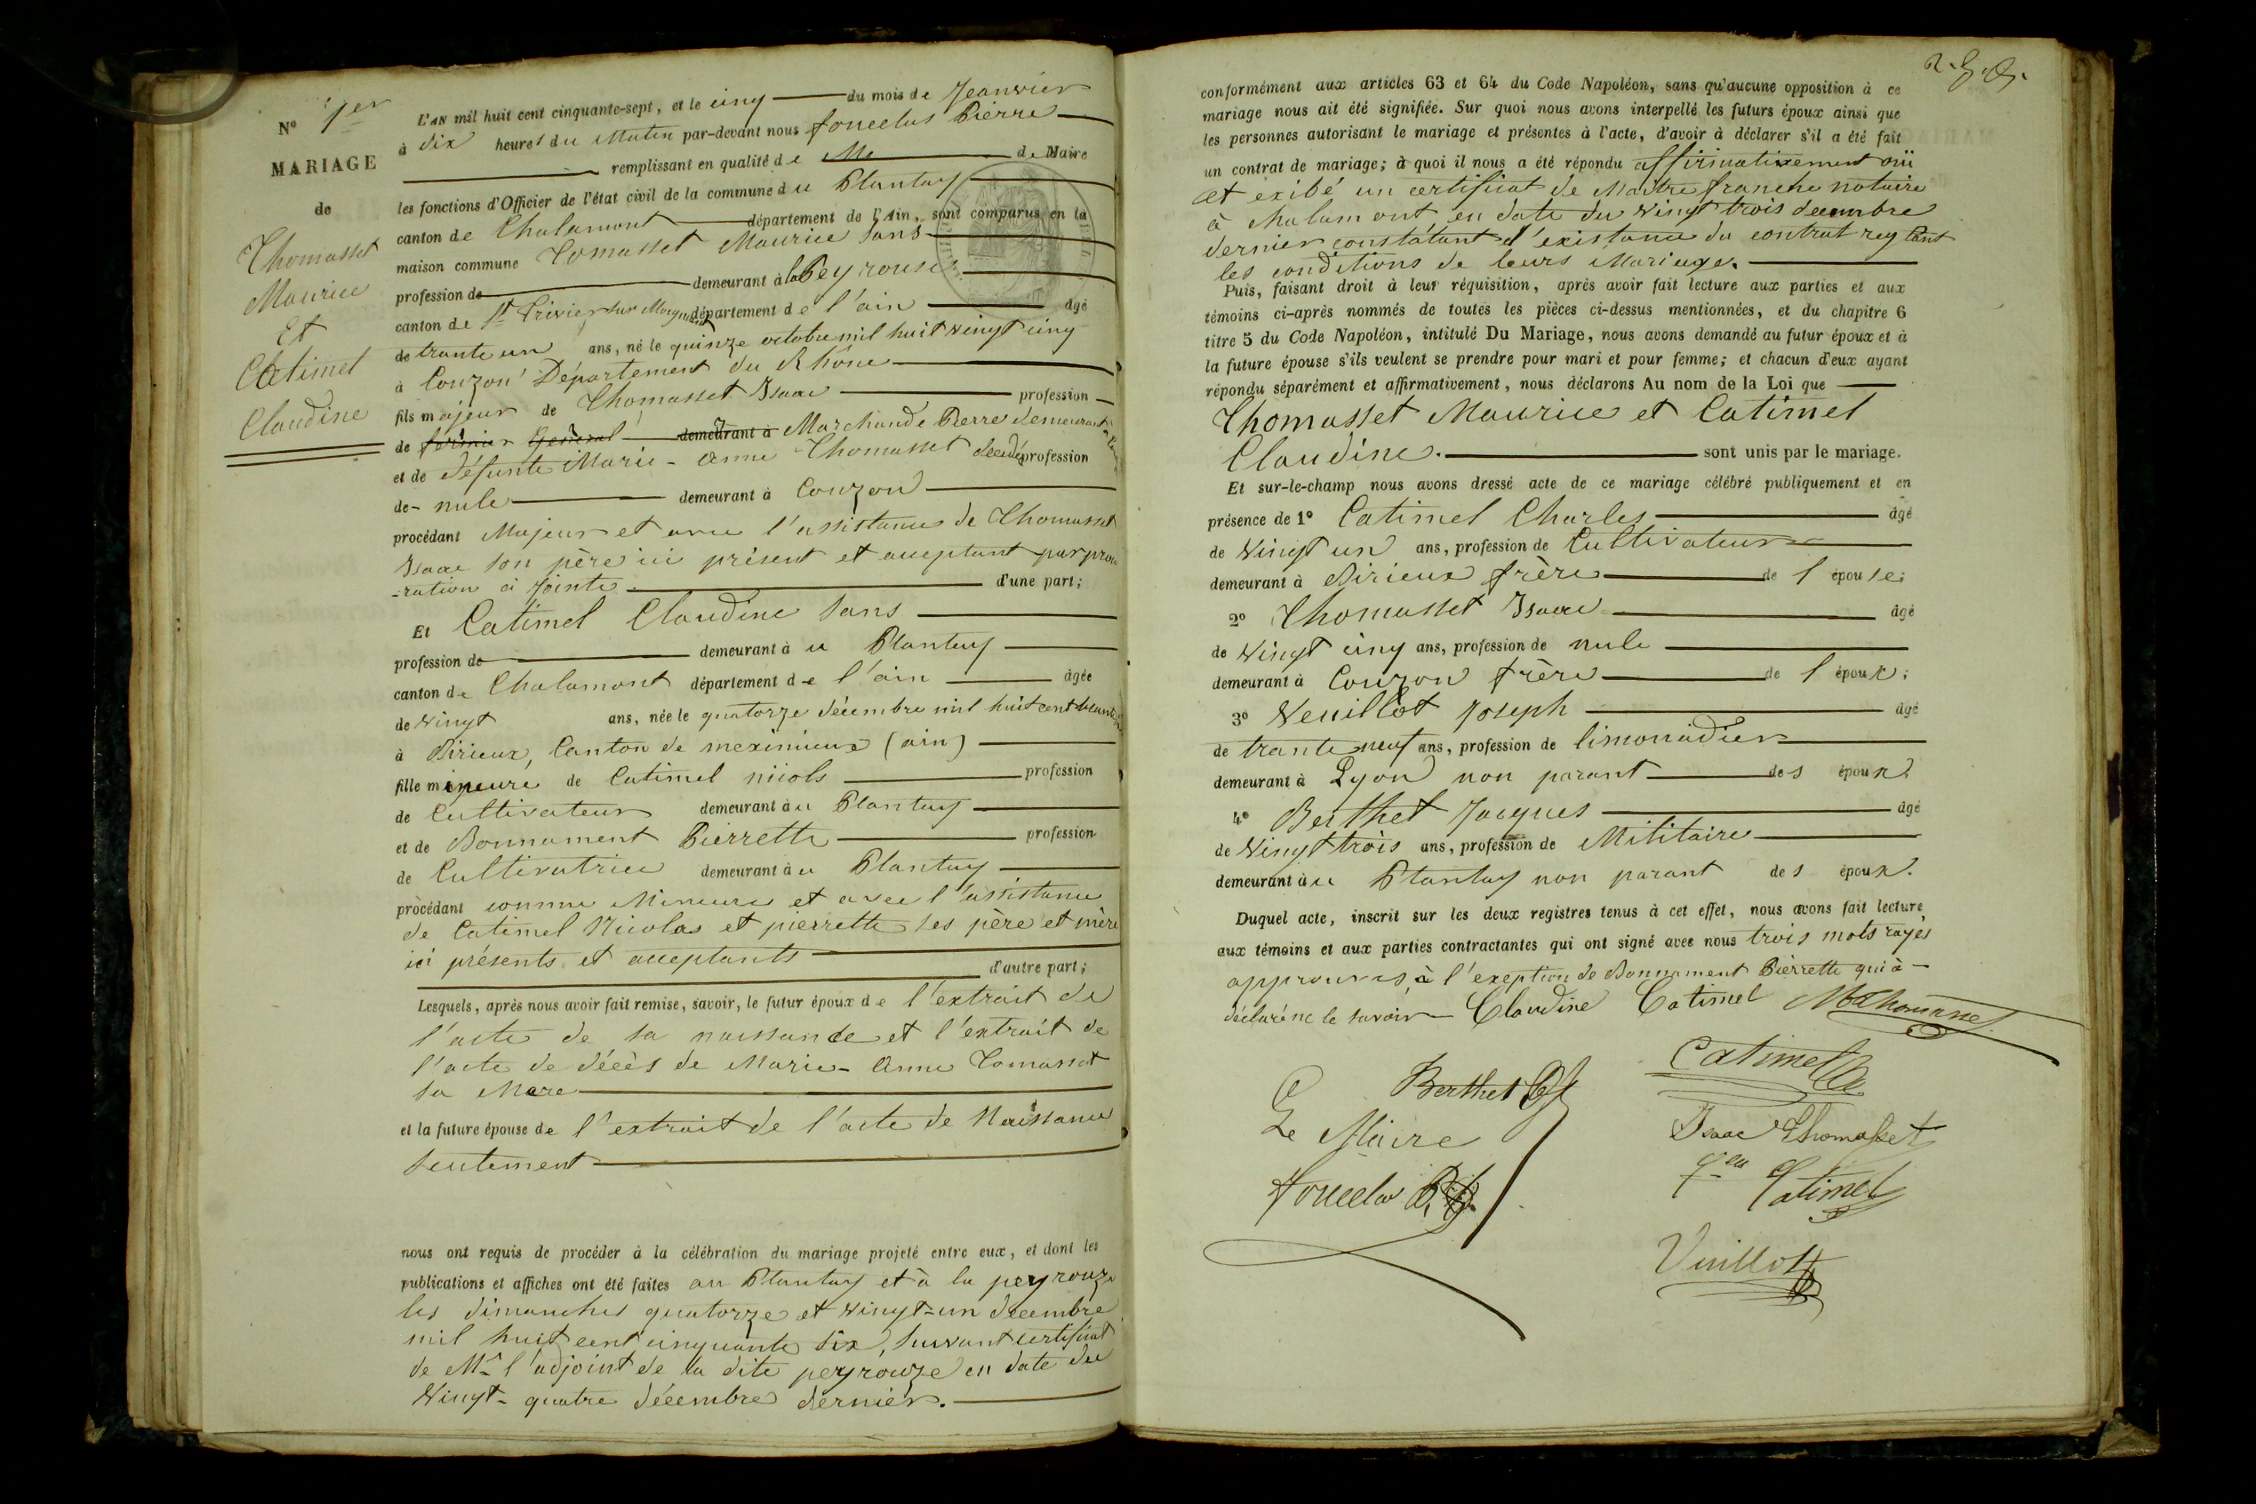 N° 1er
MARIAGE
de
Thomasset
Maurice
Et
Catimel
Claudine
L'AN mil huit cent cinquante-sept, et le cinq du mois de Jeanvier
à dix heures du Matin par-devant nous fouclus Pierre
remplissant en qualité de Me de Maire
les fonctions d'Officier de l'état civil de la commune du Plantay
canton de Chalamont département de l'Ain, sont comparus en la
maison commune Tomasset Maurice sans
profession de demeurant à la Peyrouse
canton de St Trivier sur Moignans département de l'ain âgé
de trante un ans, né le quinze octobre mil huit vingt cinq
à Couzon Département du Rhône
fils majeur de Thomasset Isaac profession
de demeurant à Marchand de Pierre demeurant à
et de défunte Marie-Anne Thomasset décédé profession
de nule demeurant à Couzon
procédant Majeur et avec l'assistance de Thomasset
Isaac son père ici présent et acceptant par procu
-ration ci Jointe d'une part;
Et Catimel Claudine sans
profession de demeurant à u Plantay
canton de Chalamont département de l'ain âgée
de vingt ans, née le quatorze décembre mil huit cent
à Birieux, Canton de meximieux (ain)
fille mineure de Catimel nicols profession
de Cultivateur demeurant àu Plantay
et de Bonnament Pierrette profession
de Cultivatrice demeurant àu Plantay
procédant comme Mineure et avec l'assistance
de Catimel Nicolas et pierrette ses père et mère
ici présents et acceptants
d'autre part;
Lesquels, après nous avoir fait remise, savoir, le futur époux de l'extrait de
l'acte de sa naissance et l'extrait de
l'acte de décès de Marie-Anne Tomasset
sa Mere
et la future épouse de l'extrait de l'acte de Naissance
seulement
nous ont requis de procéder à la célébration du mariage projeté entre eux, et dont les
publications et affiches ont été faites au Plantay et à la peyrouze
les dimanches quatorze et vingt-un décembre
mil huit cent cinquante six, suivant certificat
de Mr l'adjoint de la dite peyrouze en date du
vingt-quatre décembre dernier.
conformément aux articles 63 et 64 du Code Napoléon, sans qu'aucune opposition à ce
mariage nous ait été signifiée. Sur quoi nous avons interpellé les futurs époux ainsi que
les personnes autorisant le mariage et présentes à l'acte, d'avoir à déclarer s'il a été fait
un contrat de mariage; à quoi il nous a été répondu affirmativement oui
et exibé un certificat de Maître franche notaire
à Chalamont en date du vingt trois décembre
dernier constatant l'existance du contrat reglant
les conditions de leurs Mariage.
Puis, faisant droit à leur réquisition, après avoir fait lecture aux parties et aux
témoins ci-après nommés de toutes les pièces ci-dessus mentionnées, et du chapitre 6
titre 5 du Code Napoléon, intitulé Du Mariage, nous avons demandé au futur époux et à
la future épouse s'ils veulent se prendre pour mari et pour femme; et chacun d'eux ayant
répondu séparément et affirmativement, nous déclarons Au nom de la Loi que
Thomasset Maurice et Catimel
Claudine. sont unis par le mariage.
Et sur-le-champ nous avons dressé acte de ce mariage célébré publiquement et en
présence de 1° Catimel Charles âgé
de vingt un ans, profession de Cultivateur
demeurant à Birieux frère de l épouse;
2° Thomasset Isaac âgé
de vingt cinq ans, profession de nule
demeurant à Couzon frère de l époux;
3° Veuillot Joseph âgé
de trante neuf ans, profession de limonadier
demeurant à Lyon non parant des époux.
4° Berthet Jacques âgé
de vingt trois ans, profession de Militaire
demeurant àu Plantay non parant des époux.
Duquel acte, inscrit sur les deux registres tenus à cet effet, nous avons fait lecture
aux témoins et aux parties contractantes qui ont signé avec nous trois mots rayés
approuvés, à l'exeption de Bonnament Pierrette qui à
déclaré ne le savoir Claudine Catimel
Berthet
Catimel
Le Maire
Isaac Thomasset
Catimel
Vuillot